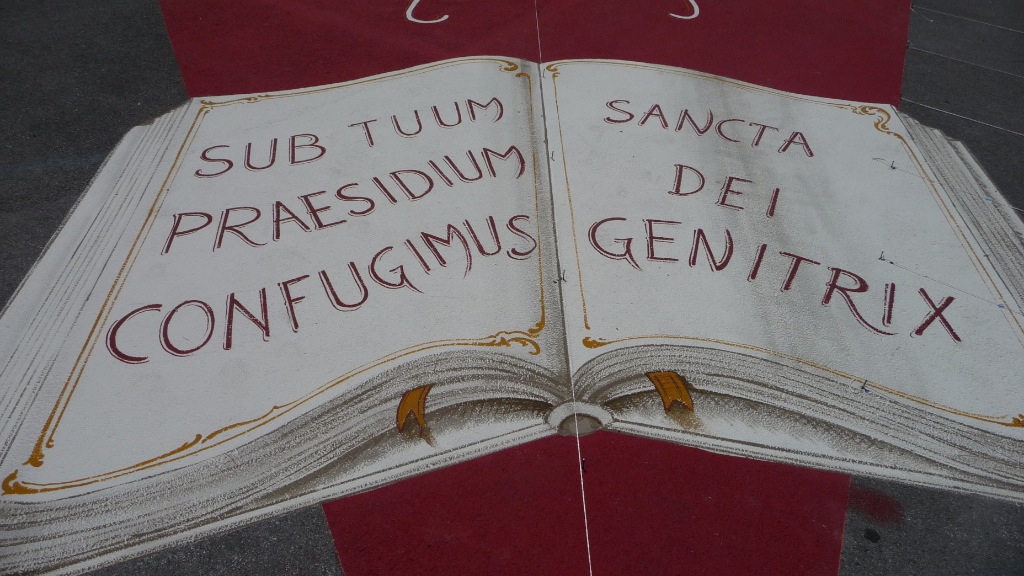 SUB TUUM
PRAESIDIUM
CONFUGIMUS
SANCTA
DEI
GENITRIX